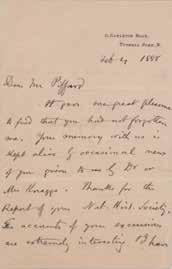 Carleton Road,
Tufnell Park, N.
Feb 29 1888
Dear Mr Piffard
It gave me great pleasure
to find that you had not forgotten
me. Your memory with us is
kept alive by occasional news
of you given to us by Dr or
Mrs Knaggs. Thanks for the
Report of your Nat. Hist. Society.
The accounts of your excursions
are extremely interesting. I have